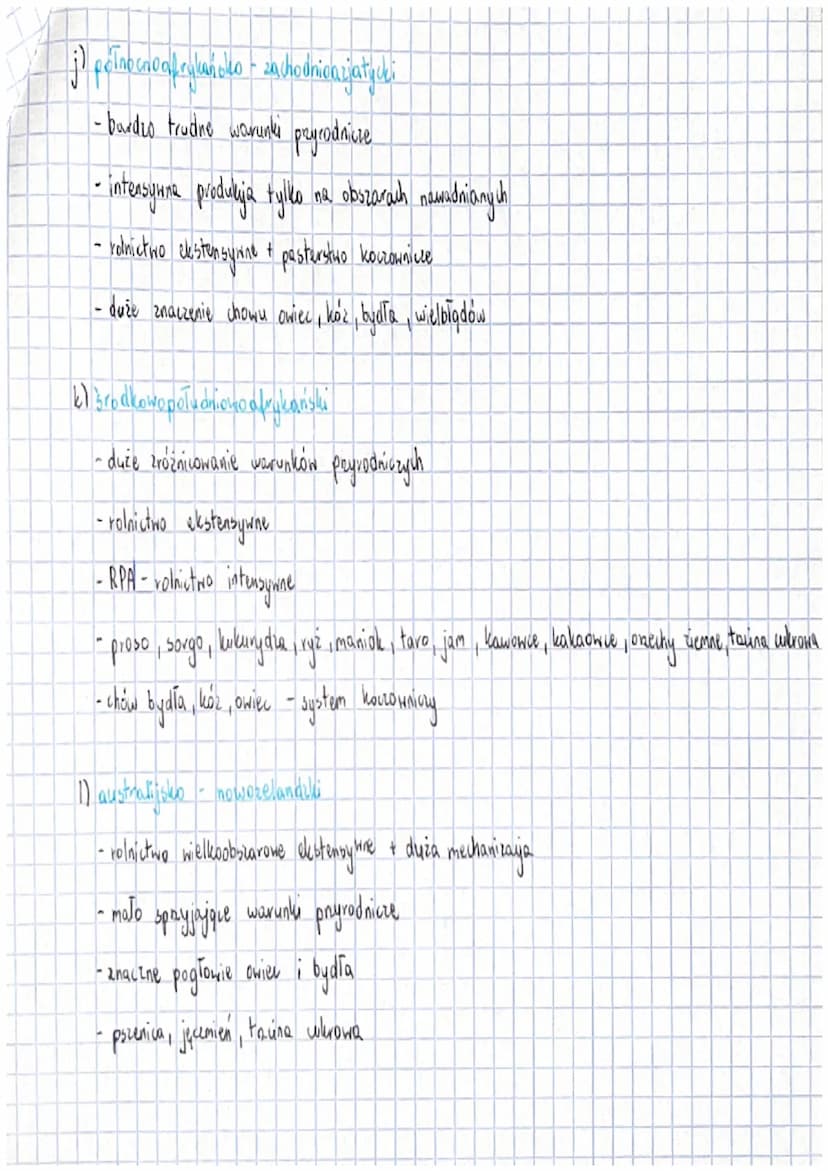 j) północnoafrykańsko - zachodnioazjatycki
- bardzo trudne warunki przyrodnicze
- intensywna produkcja tylko na obszarach nawadnianych
- rolnictwo ekstensywne + pasterstwo koczownicze
- duże znaczenie chowu owiec, kóz, bydła, wielbłądów
k) środkowopołudniowoafrykański
- duże zróżnicowanie warunków przyrodniczych
- rolnictwo ekstensywne
- RPA - rolnictwo intensywne
- proso, sorgo, kukurydza, ryż, maniok, taro, jam, kawowce, kakaowce, orzechy ziemne, trzcina cukrowa
- chów bydła, kóz, owiec - system koczowniczy
l) australijsko - nowozelandzki
- rolnictwo wielkoobszarowe ekstensywne + duża mechanizacja
- mało sprzyjające warunki przyrodnicze
- znaczne pogłowie owiec i bydła
- pszenica, jęczmień, trzcina cukrowa